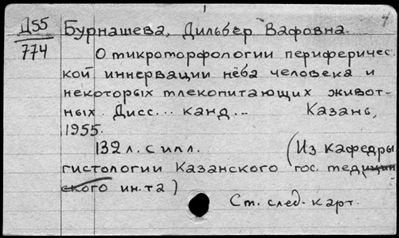 Д55
774
Бурнашева, Дильбер Вафовна.
О микроморфологии перифериче-
ской иннервации нёба человека и
некоторых млекопитающих живот-
ных. Дисс... канд... Казань,
1955.
132 л. с илл. (Из кафедры
гистологии Казанского гос. медицин
ского ин-та)
См. след. карт.